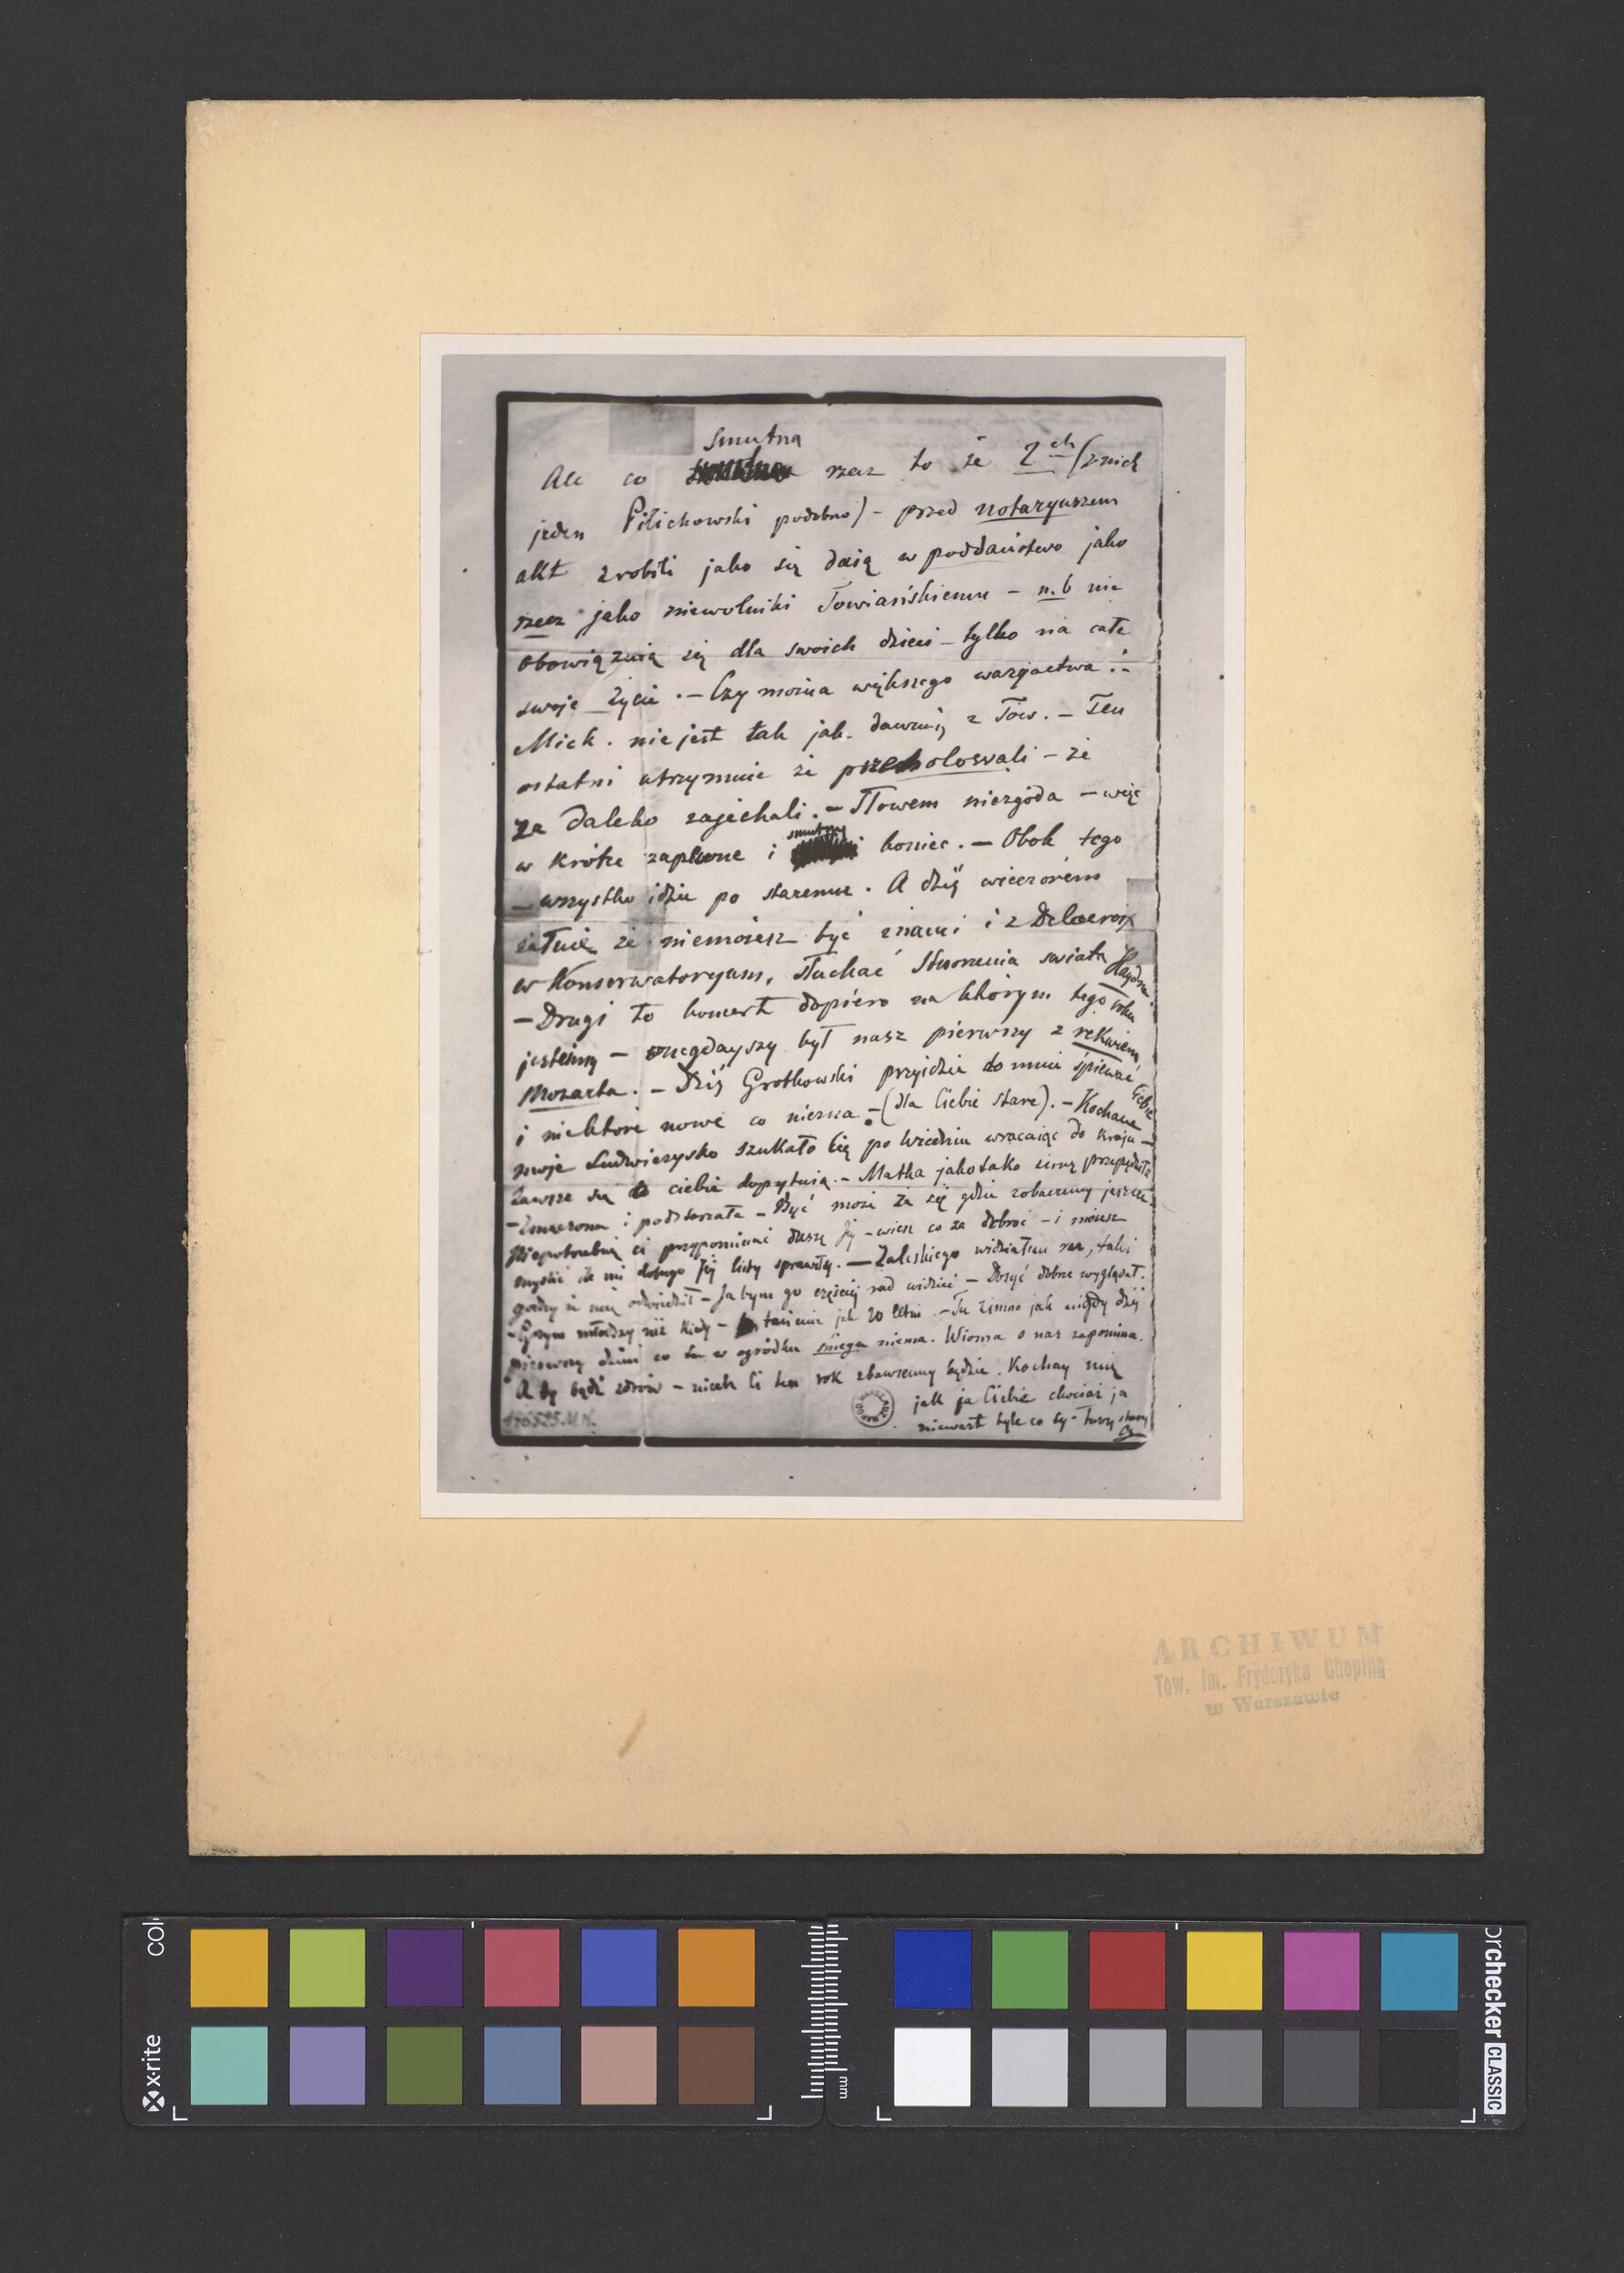 smutna
Ale co rzecz to że 2ch (z nich
jeden Pilichowski podobno) – przed notaryuszem
akt zrobili jako się daią w poddaństwo jako
rzecz jako niewolniki Towiańskiemu – n.b nie
obowięzuią się dla swoich dzieci – tylko na całe
swoje życie. – Czy można większego waryactwa
Mick. nie jest tak jak dawniej z Tow. – Ten
ostatni utrzymuie że przeholowali – że
za daleko zajechali. – Słowem niezgoda – więc
smutny
w krótce zapewne i koniec. – Obok tego
– wszystko idzie po staremu. A dziś wieczorem
żałuię że niemożesz być z nami i z Delacroix
w Konserwatoryum, słuchać Stworzenia swiata Haydna.
– Drugi to koncert dopiero na którym tego roku
jesteśmy – onegdayszy był nasz pierwszy z rekwiem
Mozarta. – Dziś Grotkowski przyidzie do mnie śpiewać Ciebie
i niektóre nowe co niezna – (dla Ciebie stare). – Kochane
moje Ludwiczysko szukało Cię po Wiedniu wracaiąc do kraju –
Zawsze się o ciebie dopytuią. – Matka jako tako zimę przepędziła
– Zmęczona i podstarzała – Być może że się gdzie zobaczemy jeszcze.
Niepotrzebuię ci przypominać duszę Jej – wiesz co za dobroć – i możesz
myśleć ile mi dobrego Jej listy sprawiły. — Zaleskiego widziałem raz, taki
godny że mię odwiedził – Ja bym go częściej rad widzieć – Dosyć dobrze wyglądał.
– Grzym młodszy niż kiedy – tańcuie jak 20 letni. – Tu zimno jak nigdy dziś
pierwszy dzień co tu w ogródku śniegu niema. Wiosna o nas zapomina.
A ty bądź zdrów – niech Ci ten rok zbawienny będzie. Kochay mię
jak ja Ciebie chociaż ja
niewart tyle co ty – Twoy stary
Ch
ARCHIWUM
Tow. Im. Fryderyka Chopina
w Warszawie
x·rite
colorchecker CLASSIC
mm